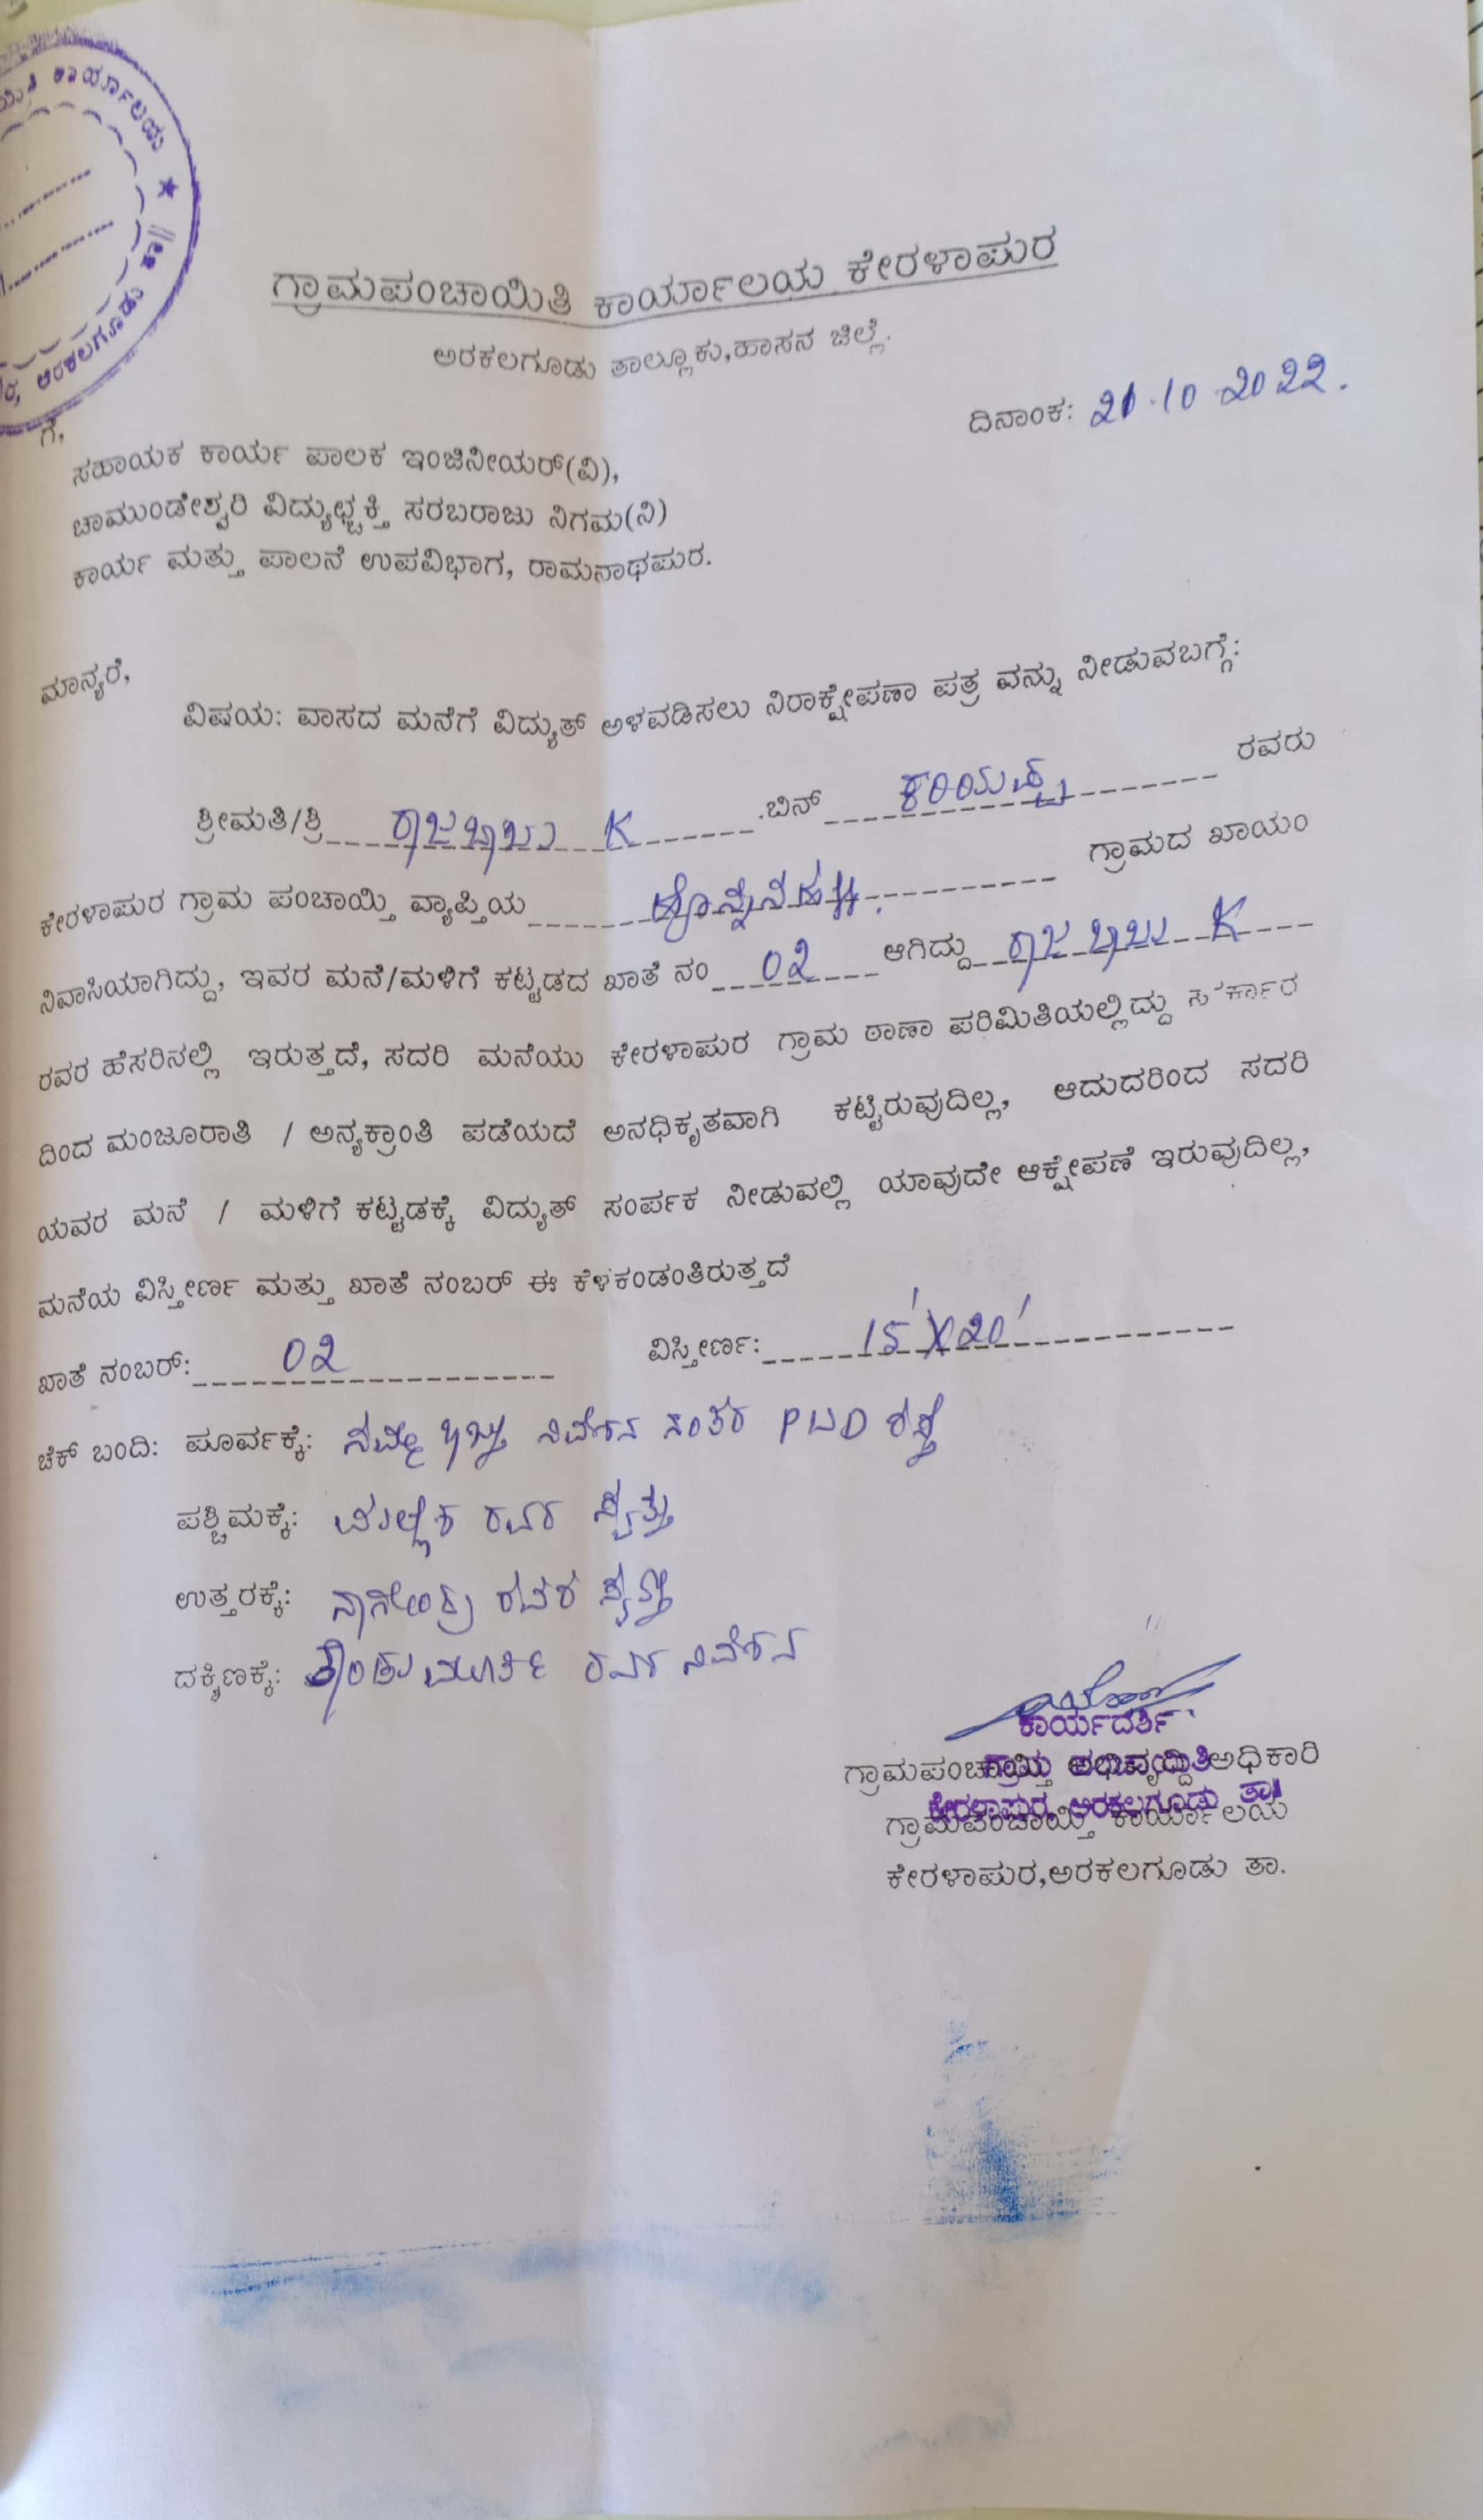 ಕಾರ್ಯಾಲಯ ★
ಅರಕಲಗೂಡು
ಗ್ರಾಮಪಂಚಾಯಿತಿ ಕಾರ್ಯಾಲಯ ಕೇರಳಾಪುರ
ಅರಕಲಗೂಡು ತಾಲ್ಲೂಕು,ಹಾಸನ ಜಿಲ್ಲೆ.
ದಿನಾಂಕ: 21.10.2022.
ಗೆ,
ಸಹಾಯಕ ಕಾರ್ಯ ಪಾಲಕ ಇಂಜಿನೀಯರ್(ವಿ),
ಚಾಮುಂಡೇಶ್ವರಿ ವಿದ್ಯುಛ್ಚಕ್ತಿ ಸರಬರಾಜು ನಿಗಮ(ನಿ)
ಕಾರ್ಯ ಮತ್ತು ಪಾಲನೆ ಉಪವಿಭಾಗ, ರಾಮನಾಥಪುರ.
ಮಾನ್ಯರೆ,
ವಿಷಯ: ವಾಸದ ಮನೆಗೆ ವಿದ್ಯುತ್ ಅಳವಡಿಸಲು ನಿರಾಕ್ಷೇಪಣಾ ಪತ್ರ ವನ್ನು ನೀಡುವಬಗ್ಗೆ:
ಶ್ರೀಮತಿ/ಶ್ರಿ ರಾಜಬಾಬು K .ಬಿನ್ ಕರಿಯಪ್ಪ ರವರು
ಕೇರಳಾಪುರ ಗ್ರಾಮ ಪಂಚಾಯ್ತಿ ವ್ಯಾಪ್ತಿಯ ಗ್ರಾಮದ ಖಾಯಂ
ನಿವಾಸಿಯಾಗಿದ್ದು, ಇವರ ಮನೆ/ಮಳಿಗೆ ಕಟ್ಟಡದ ಖಾತೆ ನಂ 02 ಆಗಿದ್ದು ರಾಜಬಾಬು K
ರವರ ಹೆಸರಿನಲ್ಲಿ ಇರುತ್ತದೆ, ಸದರಿ ಮನೆಯು ಕೇರಳಾಪುರ ಗ್ರಾಮ ಠಾಣಾ ಪರಿಮಿತಿಯಲ್ಲಿದ್ದು ಸರ್ಕಾರ
ದಿಂದ ಮಂಜೂರಾತಿ / ಅನ್ಯಕ್ರಾಂತಿ ಪಡೆಯದೆ ಅನಧಿಕೃತವಾಗಿ ಕಟ್ಟಿರುವುದಿಲ್ಲ, ಆದುದರಿಂದ ಸದರಿ
ಯವರ ಮನೆ / ಮಳಿಗೆ ಕಟ್ಟಡಕ್ಕೆ ವಿದ್ಯುತ್ ಸಂರ್ಪಕ ನೀಡುವಲ್ಲಿ ಯಾವುದೇ ಆಕ್ಷೇಪಣೆ ಇರುವುದಿಲ್ಲ,
ಮನೆಯ ವಿಸ್ತೀರ್ಣ ಮತ್ತು ಖಾತೆ ನಂಬರ್ ಈ ಕೆಳಕಂಡಂತಿರುತ್ತದೆ
ಖಾತೆ ನಂಬರ್: 02 ವಿಸ್ತೀರ್ಣ: 15'X20'
ಚೆಕ್ ಬಂದಿ: ಪೂರ್ವಕ್ಕೆ: ನಿವೇಶನ ನಂತರ PWD ರಸ್ತೆ
ಪಶ್ಚಿಮಕ್ಕೆ: ರವರ ಸ್ವತ್ತು
ಉತ್ತರಕ್ಕೆ: ರವರ ಸ್ವತ್ತು
ದಕ್ಷಿಣಕ್ಕೆ: ರವರ ನಿವೇಶನ
ಕಾರ್ಯದರ್ಶಿ
ಗ್ರಾಮಪಂಚಾಯ್ತಿ ಅಭಿವೃದ್ದಿ ಅಧಿಕಾರಿ
ಕೇರಳಾಪುರ, ಅರಕಲಗೂಡು ತಾ||
ಗ್ರಾಮಪಂಚಾಯ್ತಿ ಕಾರ್ಯಾಲಯ
ಕೇರಳಾಪುರ,ಅರಕಲಗೂಡು ತಾ.